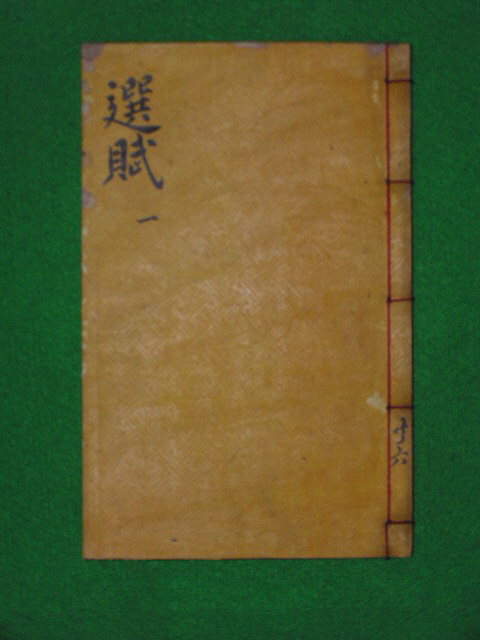 選賦
一
共六